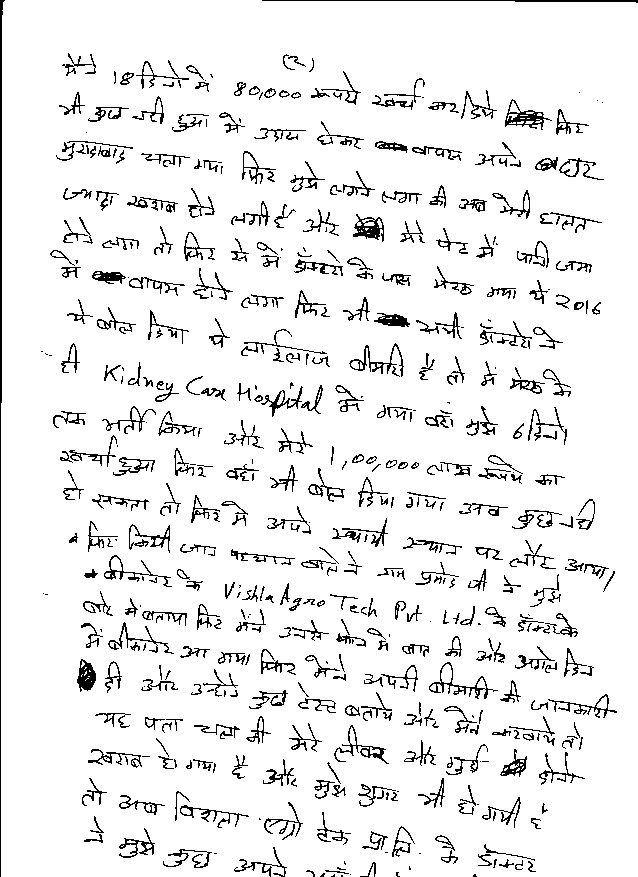 (2)
मैंने 18 दिनो में 80,000 रूपये खर्च कर दिये फिर
भी कुछ नही हुआ में उदास होकर वापस अपने घर
मुरादाबाद चला गया फिर मुझे लगने लगा की अब मेरी हालत
ज्यादा खराब होने लगी है और मेरे पेट में पानी जमा
होने लगा तो फिर से में डॉक्टरो के पास मेरठ गया ये 2016
में वापस होने लगा फिर भी सभी डॉक्टरो ने
ये बोल दिया ये लाईलाज बीमारी है तो में मेरठ के
ही Kidney Care Hospital में गया वहाँ मुझे 6 दिनो
तक भर्ती किया और मेरे 1,00,000 लाख रूपये का
खर्चा हुआ फिर वहाँ भी बोल दिया गया अब कुछ नही
हो सकता तो फिर में अपने स्थायी स्थान पर लौट आया।
फिर किसी जान पहचान वाले ने नाम प्रमोद जी ने मुझे
बीकानेर के Vishla Agro Tech Pvt. Ltd. के डॉक्टर के
बारे में बताया फिर मैंने उनसे फोन में बात की और अगले दिन
में बीकानेर आ गया फिर मैंने अपनी बीमारी की जानकारी
दी और उन्होने कुछ टेस्ट बताये और मैंने करवाये तो
यह पता चला की मेरे लीवर और गुर्दा दोनो
खराब हो गया है और मुझे शुगर भी हो गयी है
तो अब विशला एग्रो टेक प्रा.लि. के डॉक्टर
ने मुझे कुछ अपने